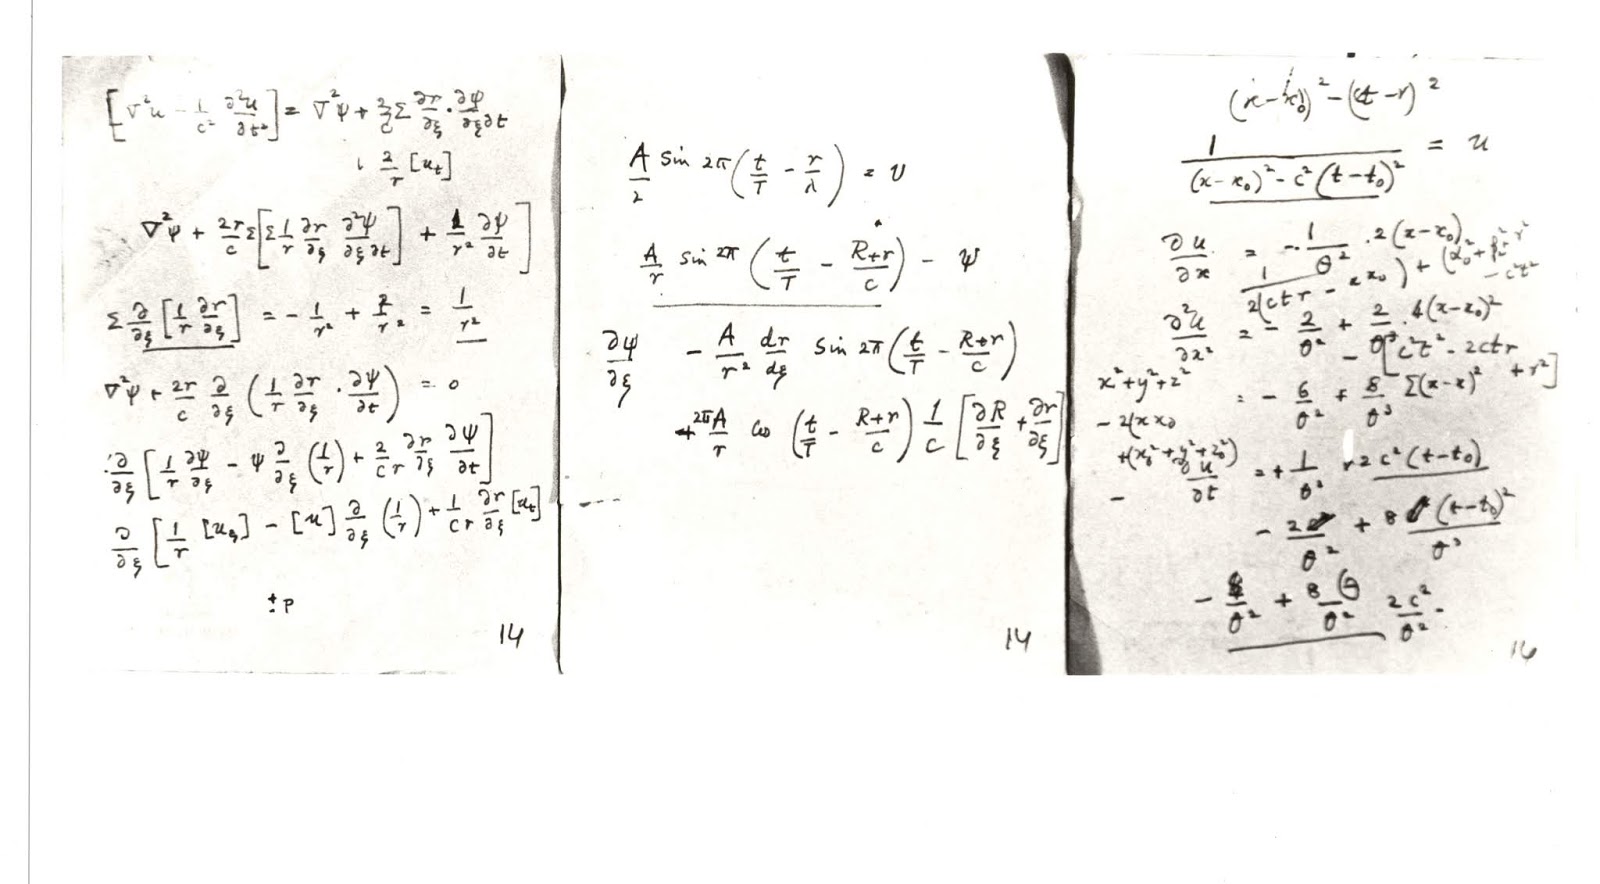 [∇²u - 1/c² ∂²u/∂t²] = ∇²ψ + 2/c Σ ∂r/∂ξ · ∂ψ/∂ξ∂t
2/r [u_t]
∇²ψ + 2r/c Σ [Σ 1/r ∂r/∂ξ ∂²ψ/∂ξ∂t] + 1/r² ∂ψ/∂t ]
Σ ∂/∂ξ [1/r ∂r/∂ξ] = - 1/r² + 2/r² = 1/r²
∇²ψ + 2r/c ∂/∂ξ (1/r ∂r/∂ξ · ∂ψ/∂t) = 0
∂/∂ξ [1/r ∂ψ/∂ξ - ψ ∂/∂ξ (1/r) + 2/cr ∂r/∂ξ ∂ψ/∂t]
∂/∂ξ [1/r [u_ξ] - [u] ∂/∂ξ (1/r) + 1/cr ∂r/∂ξ [u_t]
± P
14
A/2 sin 2π (t/T - r/λ) = υ
A/r sin 2π (t/T - R+r/c) - ψ
∂ψ/∂ξ - A/r² dr/dξ sin 2π (t/T - R+r/c)
+ 2πA/r cos (t/T - R+r/c) 1/c [∂R/∂ξ + ∂r/∂ξ]
14
(x - x₀)² - (ct - r)²
1/((x-x₀)² - c²(t-t₀)²) = u
∂u/∂x = - 1/θ² · 2(x-x₀)
∂²u/∂x² = - 2/θ² + 2/θ³ · 4(x-x₀)²
- [c²t² - 2ctr + r²]
x²+y²+z² = - 6/θ² + 8/θ³ Σ(x-x)²
- 2(xx₀
+(x₀²+y₀²+z₀²)
∂u/∂t = + 1/θ² × 2c²(t-t₀)
+ 8 (t-t₀)²/θ³
2c²/θ²
14